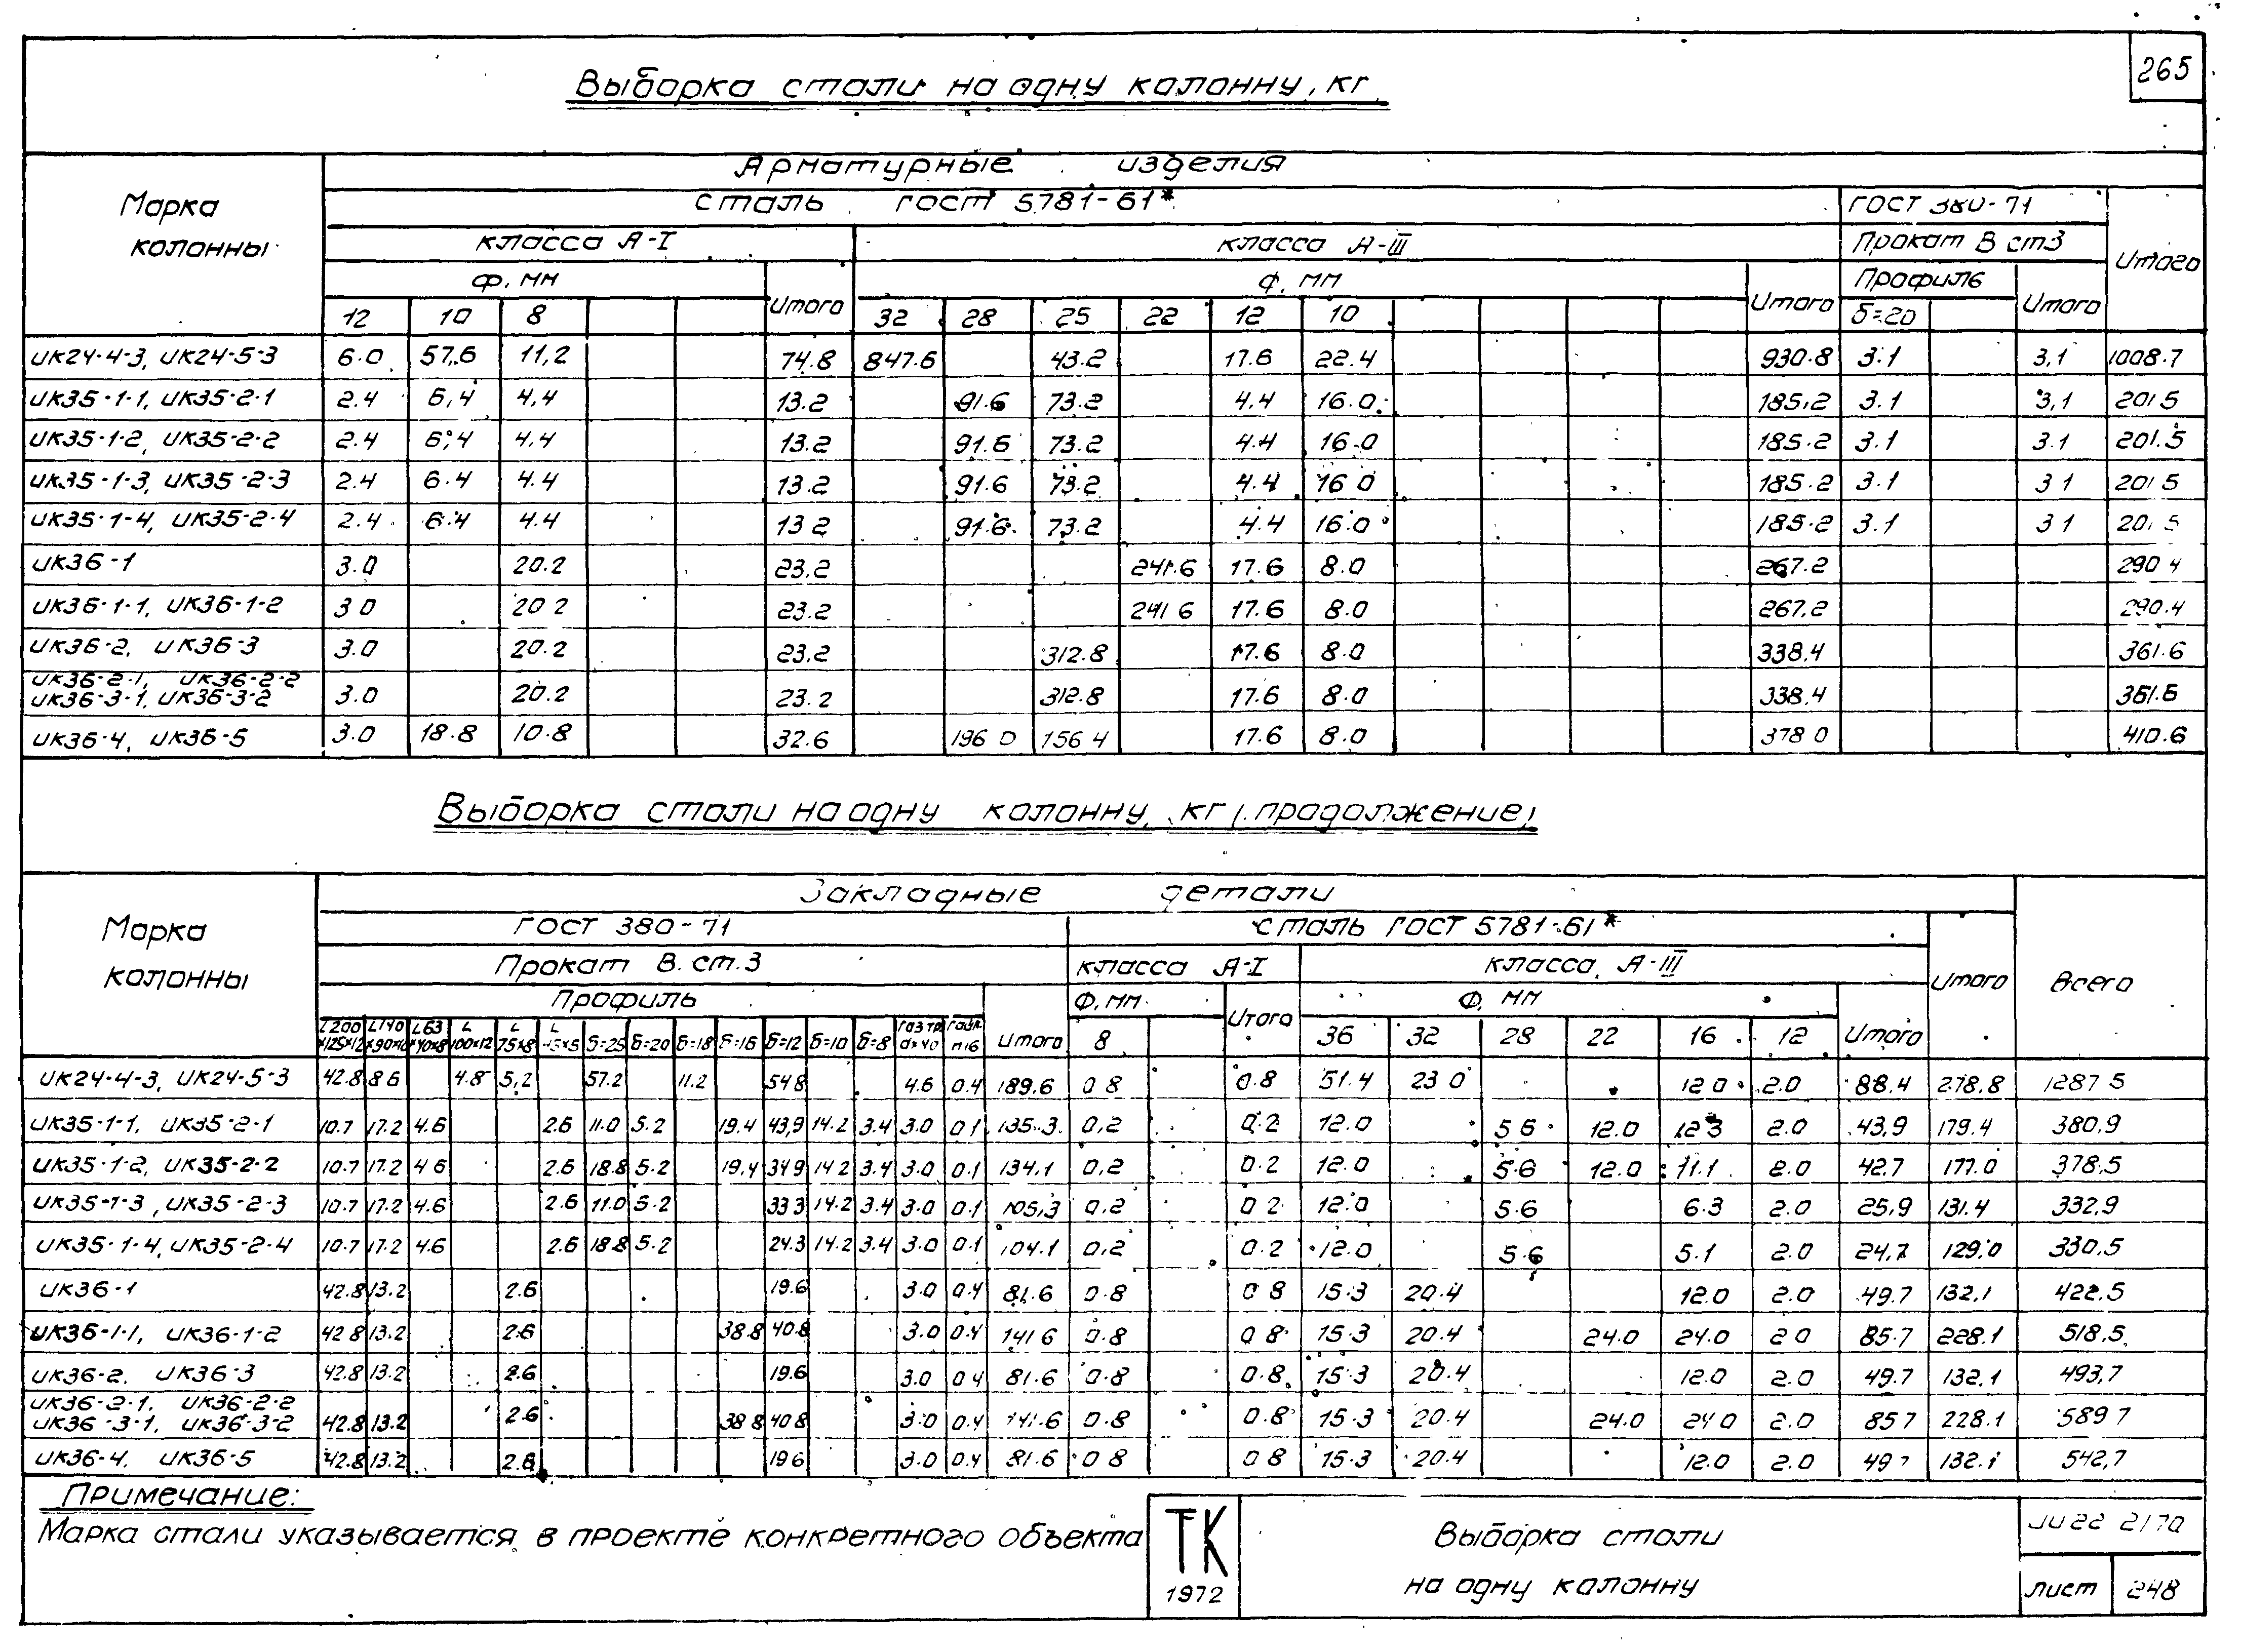 265
Выборка стали на одну колонну, кг
Марка колонны
Арматурные изделия
сталь ГОСТ 5781-61*
ГОСТ 380-71
Итого
класса А-I
класса А-III
Прокат В ст3
ф, мм
Итого
Ф, мм
Итого
Профиль
Итого
12 10 8 32 28 25 22 12 10 δ=20
ИК24-4-3, ИК24-5-3 6.0 57,6 11,2 74.8 847.6 43.2 17.6 22.4 930.8 3.1 3,1 1008.7
ИК35-1-1, ИК35-2-1 2.4 6,4 4,4 13.2 91.6 73.2 4.4 16.0 185,2 3.1 3,1 201 5
ИК35-1-2, ИК35-2-2 2.4 6,4 4.4 13.2 91.6 73.2 4.4 16.0 185.2 3.1 3.1 201.5
ИК35-1-3, ИК35-2-3 2.4 6.4 4.4 13.2 91.6 73.2 4.4 16 0 185.2 3.1 3 1 201 5
ИК35-1-4, ИК35-2-4 2.4 6.4 4.4 13 2 91.6 73.2 4.4 16.0 185.2 3.1 3 1 201 5
ИК36-1 3.0 20.2 23,2 241.6 17.6 8.0 267.2 290 4
ИК36-1-1, ИК36-1-2 3 0 20 2 23.2 241 6 17.6 8.0 267,2 290.4
ИК36-2, ИК36-3 3.0 20.2 23,2 312.8 17.6 8.0 338,4 361.6
ИК36-2-1, ИК36-2-2
ИК36-3-1, ИК36-3-2 3.0 20.2 23.2 312.8 17.6 8.0 338,4 361.6
ИК36-4, ИК36-5 3.0 18.8 10.8 32.6 196 0 156 4 17.6 8.0 378 0 410.6
Выборка стали на одну колонну, кг (продолжение)
Марка колонны
Закладные детали
Всего
ГОСТ 380-71
сталь ГОСТ 5781-61*
Итого
Прокат В.ст.3
класса А-I
класса А-III
Профиль
Итого
Ф, мм
Итого
Ф, мм
Итого
L200×125×12 L140×90×10 L63×40×8 L100×12 L75×8 δ=25 δ=20 δ=18 δ=16 δ=12 δ=10 δ=8 8 36 32 28 22 16 12
ИК24-4-3, ИК24-5-3 42.8 8 6 4.8 5,2 57.2 11.2 54 8 4.6 0.4 189.6 0 8 0.8 51.4 23 0 12 0 2.0 88.4 278.8 1287 5
ИК35-1-1, ИК35-2-1 10.7 17.2 4.6 2.6 11.0 5.2 19.4 43,9 14.2 3.4 3.0 0 1 135.3 0,2 0.2 12.0 5 6 12.0 12 3 2.0 43,9 179.4 380,9
ИК35-1-2, ИК35-2-2 10.7 17.2 4 6 2.6 18.8 5.2 19,4 34 9 14 2 3.4 3.0 0.1 134.1 0,2 0.2 12.0 5.6 12.0 11.1 2.0 42.7 177.0 378,5
ИК35-1-3, ИК35-2-3 10.7 17.2 4.6 2.6 11.0 5.2 33 3 14.2 3.4 3.0 0.1 105,3 0,2 0 2 12.0 5.6 6.3 2.0 25,9 131.4 332,9
ИК35-1-4, ИК35-2-4 10.7 17.2 4.6 2.6 18.8 5.2 24.3 14.2 3.4 3.0 0.1 104.1 0,2 0.2 12.0 5.6 5.1 2.0 24,7 129,0 330,5
ИК36-1 42.8 13.2 2.6 19.6 3.0 0.4 81.6 0.8 0 8 15.3 20.4 12.0 2.0 49.7 132,1 422,5
ИК36-1-1, ИК36-1-2 42 8 13.2 2.6 38.8 40.8 3.0 0.4 141 6 0.8 0 8 15.3 20.4 24.0 24.0 2 0 85.7 228.1 518,5
ИК36-2, ИК36-3 42.8 13.2 2.6 19.6 3.0 0 4 81.6 0.8 0.8 15.3 20.4 12.0 2.0 49.7 132.1 493,7
ИК36-2-1, ИК36-2-2
ИК36-3-1, ИК36-3-2 42.8 13.2 2.6 38 8 40 8 3.0 0.4 141.6 0.8 0.8 15.3 20.4 24.0 24 0 2.0 85 7 228.1 589 7
ИК36-4, ИК36-5 42.8 13.2 2.6 19 6 3.0 0.4 81.6 0 8 0 8 15.3 20.4 12.0 2.0 49 7 132.1 542,7
Примечание:
Марка стали указывается в проекте конкретного объекта
ТК
1972
Выборка стали
на одну колонну
ИИ22 2/70
лист 248